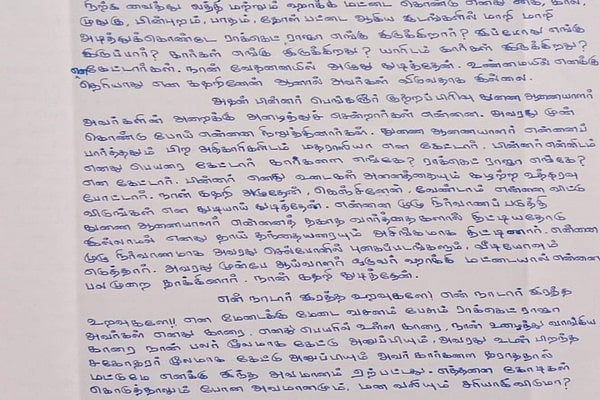 நிற்க வைத்து லத்தி மற்றும் ஹாக்கி மட்டை கொண்டு எனது கை, கால்,
முதுகு, பின்புறம், பாதம், தோள் பட்டை ஆகிய இடங்களில் மாறி மாறி
அடித்துக்கொண்டே ராக்கெட் ராஜா எங்கு இருக்கிறார்? இப்போது எங்கு
இருப்பார்? கார்கள் எங்கு இருக்கிறது? யாரிடம் கார்கள் இருக்கிறது?
எனகேட்டார்கள். நான் வேதனையில் அழுது துடித்தேன். உண்மையில் எனக்கு
தெரியாது என கதறினேன் ஆனால் அவர்கள் விடுவதாக இல்லை.
அதன் பின்னர் பெங்களூர் குற்றப்பிரிவு துணை ஆணையாளர்
அவர்களின் அறைக்கு அழைத்துச் சென்றார்கள் என்னை. அவரது முன்
கொண்டு போய் என்னை நிறுத்தினார்கள். துணை ஆணையாளர் என்னைப்
பார்த்ததும் பிற அதிகாரிகளிடம் மதராஸியா என கேட்டார். பின்னர் என்னிடம்
எனது பெயரை கேட்டார் கார்களை எங்கே? ராக்கெட் ராஜா எங்கே?
என கேட்டார். பின்னர் எனது உடைகள் அனைத்தையும் கழற்ற உத்தரவு
போட்டார். நான் கதறி அழுதேன், கெஞ்சினேன், வேண்டாம் என்னை விட்டு
விடுங்கள் என துடியாய் துடித்தேன். என்னை முழு நிர்வாணப் படுத்தி
துணை ஆணையாளர் என்னைத் தகாத வார்த்தைகளால் திட்டியதோடு
இல்லாமல் எனது தாய் தந்தையரையும் அசிங்கமாக திட்டினார். என்னை
முழு நிர்வாணமாக அவரது செல்போனில் புகைப்படங்களும், வீடியோவும்
எடுத்தார். அவரது முன்பே ஆய்வாளர் ஒருவர் ஹாக்கி மட்டையால் என்னை
பலமுறை தாக்கினார். நான் கதறி துடித்தேன்.
என் நாடார் இரத்த உறவுகளே! என் நாடார் இரத்த
உறவுகளே!! என மேடைக்கு மேடை வசனம் பேசும் ராக்கெட் ராஜா
அவர்கள் எனது காரை, எனது பெயரில் உள்ள காரை, நான் உழைத்து வாங்கிய
காரை நான் பலர் மூலமாக கேட்டு அனுப்பியும், அவரது உடன் பிறந்த
சகோதரர் மூலமாக கேட்டு அனுப்பியும் அவர் கார்களை தராததால்
மட்டுமே எனக்கு இந்த அவமானம் ஏற்பட்டது. எத்தனை கோடிகள்
கொடுத்தாலும் போன அவமானமும், மன வலியும் சரியாகிவிடுமா?